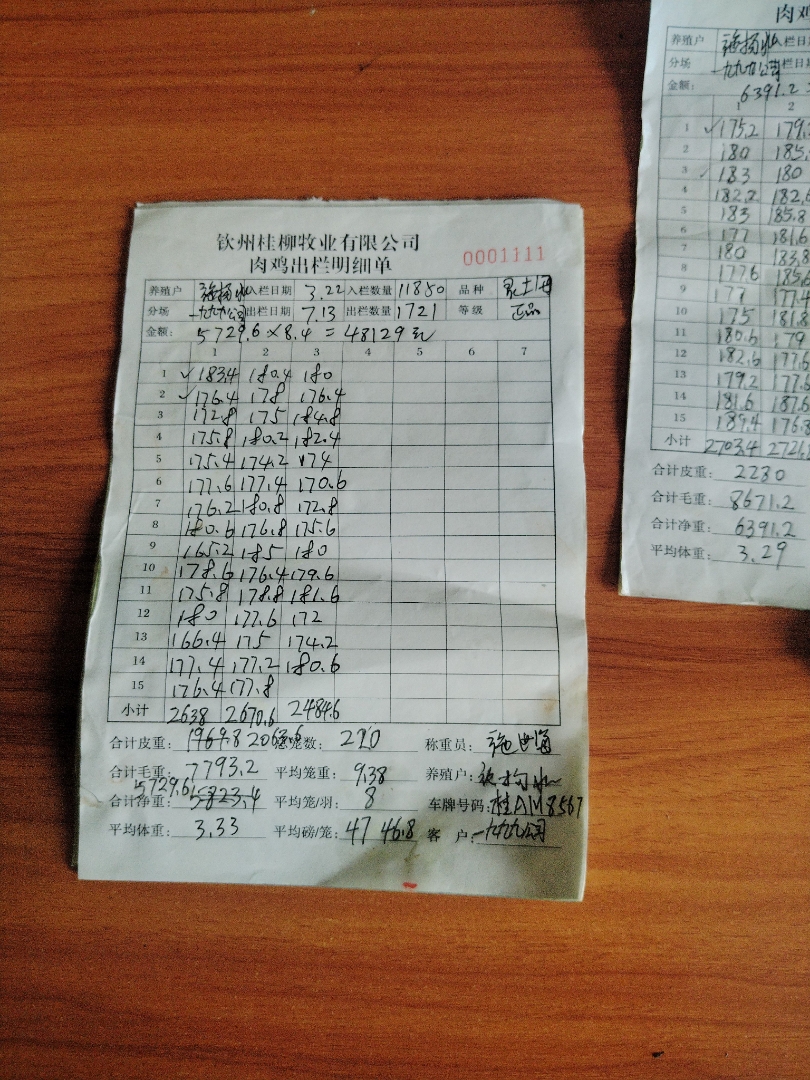 钦州桂柳牧业有限公司
肉鸡出栏明细单 0001111
养殖户 入栏日期 3.22 入栏数量 11850 品种
分场 一九九九公司 出栏日期 7.13 出栏数量 1721 等级 正品
金额: 5729.6×8.4=48129元
1 2 3 4 5 6 7
1 ✓183.4 180.4 180
2 ✓176.4 178 176.4
3 172.8 175 184.8
4 175.8 180.2 182.4
5 175.4 174.2 174
6 177.6 177.4 170.6
7 176.2 180.8 172.8
8 180.6 176.8 175.6
9 165.2 185 180
10 178.6 176.4 179.6
11 175.8 178.8 181.6
12 180 177.6 172
13 166.4 175 174.2
14 177.4 177.2 180.6
15 176.4 177.8
小计 2638 2670.6 2484.6
合计皮重: 1969.8 2063.6 总笼数: 210 称重员:
合计毛重: 7793.2 平均笼重: 9.38 养殖户:
5729.6
合计净重: 5823.4 平均笼/羽: 8 车牌号码: 桂AM8567
平均体重: 3.33 平均磅/笼: 47 46.8 客户: 一九九九公司
肉鸡
养殖户 入栏日
分场 一九九九公司 栏日
金额: 6391.2
1 2
1 ✓175.2 179.
2 180 185.
3 ✓183 180
4 182.2 182.6
5 183 185.8
6 177 181.6
7 180 183.8
8 177.6 185.6
9 177 177.4
10 175 181.8
11 180.6 179
12 182.6 177.6
13 179.2 177.6
14 181.6 187.6
15 189.4 176.8
小计 2703.4 2726.
合计皮重: 2280
合计毛重: 8671.2
合计净重: 6391.2
平均体重: 3.29